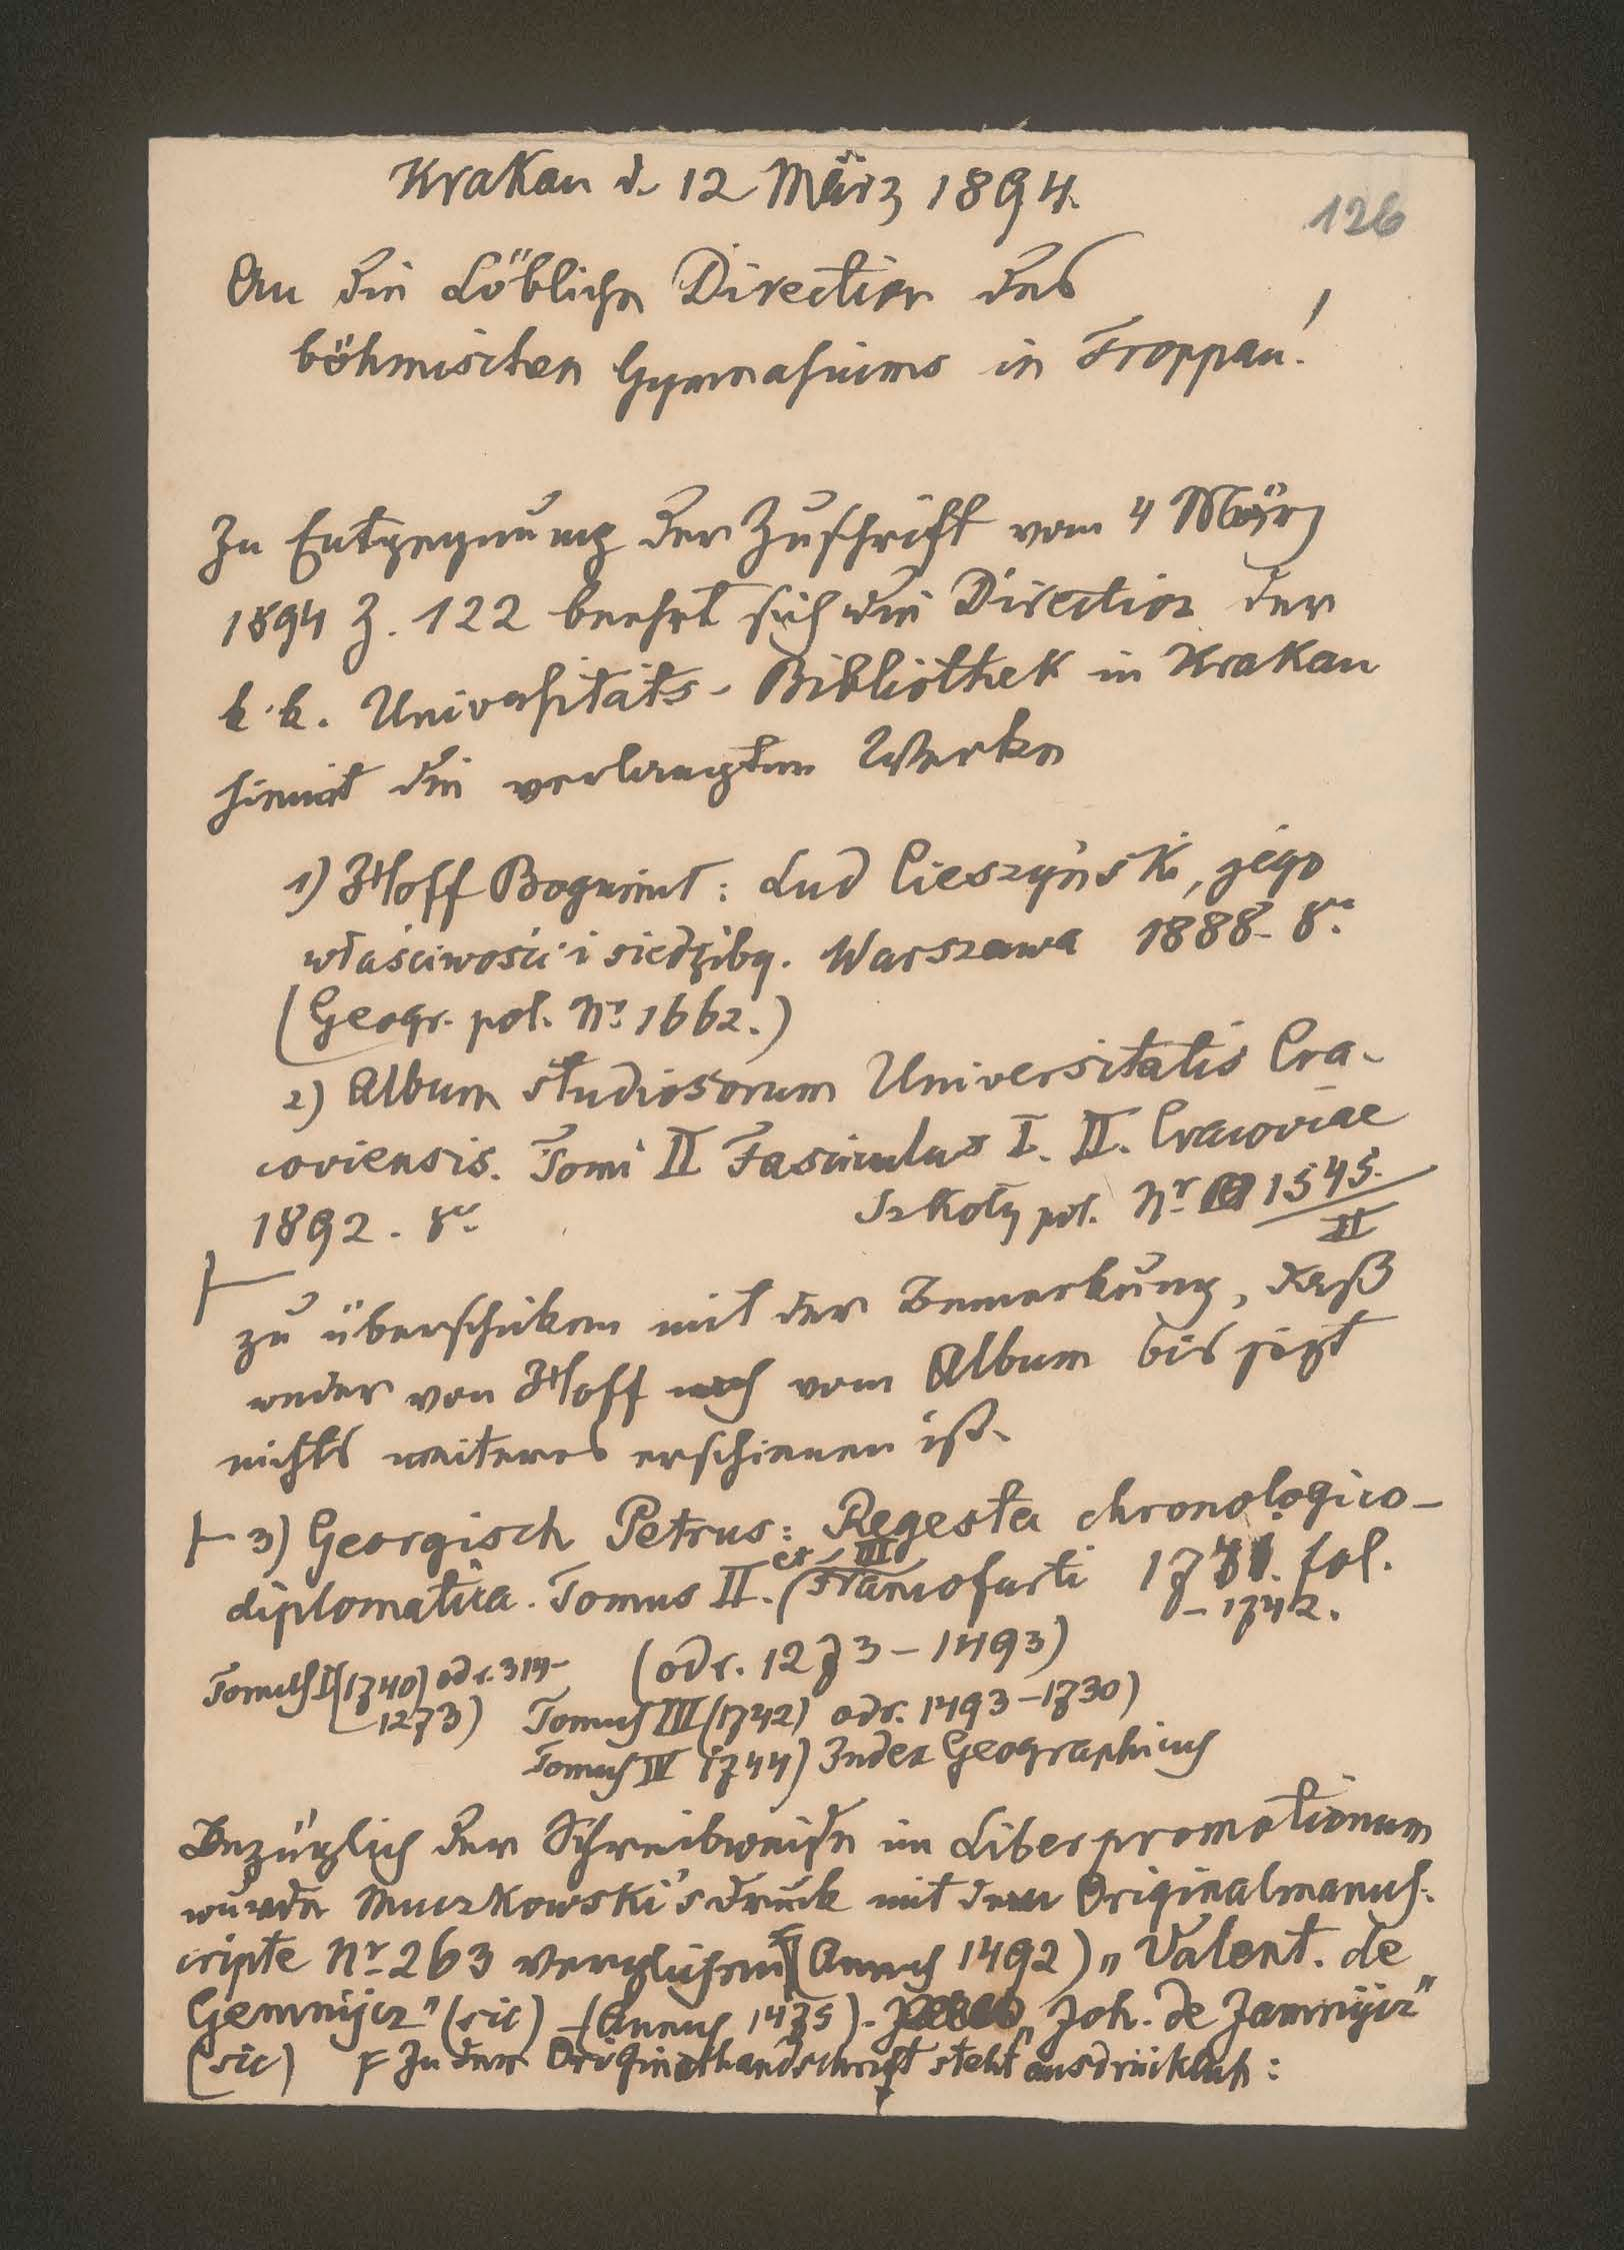 Krakau d. 12 März 1894.
126
An die Löbliche Direction des
böhmischen Gymnasiums in Troppau!
In Entgegnung der Zuschrift vom 4 März
1894 Z. 122 beehrt sich die Direction der
k. k. Universitäts-Bibliothek in Krakau
hiemit die verlangten Werke
1) Hoff Bogumił: Lud Cieszyński, jego
właściwości i siedziby. Warszawa 1888. 8o.
(Geogr. pol. Nr. 1662.)
2) Album studiosorum Universitatis Cra-
coviensis. Tomi II Fasciculus I. II. Cracoviae
1892. 8o.
Szkoły pol. Nr. 1545.
II
zu überschicken mit der Bemerkung, daß
weder von Hoff noch vom Album bis jezt
nichts weiteres erschienen ist.
3) Georgisch Petrus: Regesta chronologico-
diplomatica. Tomus II. et III Francofurti 1741. fol.
-1742.
(odr. 1273-1493)
Tomus I (1740) odr. 314-
1273)
Tomus III (1742) odr. 1493-1730)
Tomus IV 1744) Index Geographicus
Bezüglich der Schreibweise im Liber promotionum
wurde Muczkowski's Druck mit dem Originalmanus-
cripte Nr. 263 verglichen (Annus 1492) „Valent. de
Gemnijcz" (sic) - (Annus 1475). „Joh. de Jamnijcz"
(sic) F In der Originalhandschrift steht ausdrücklich: